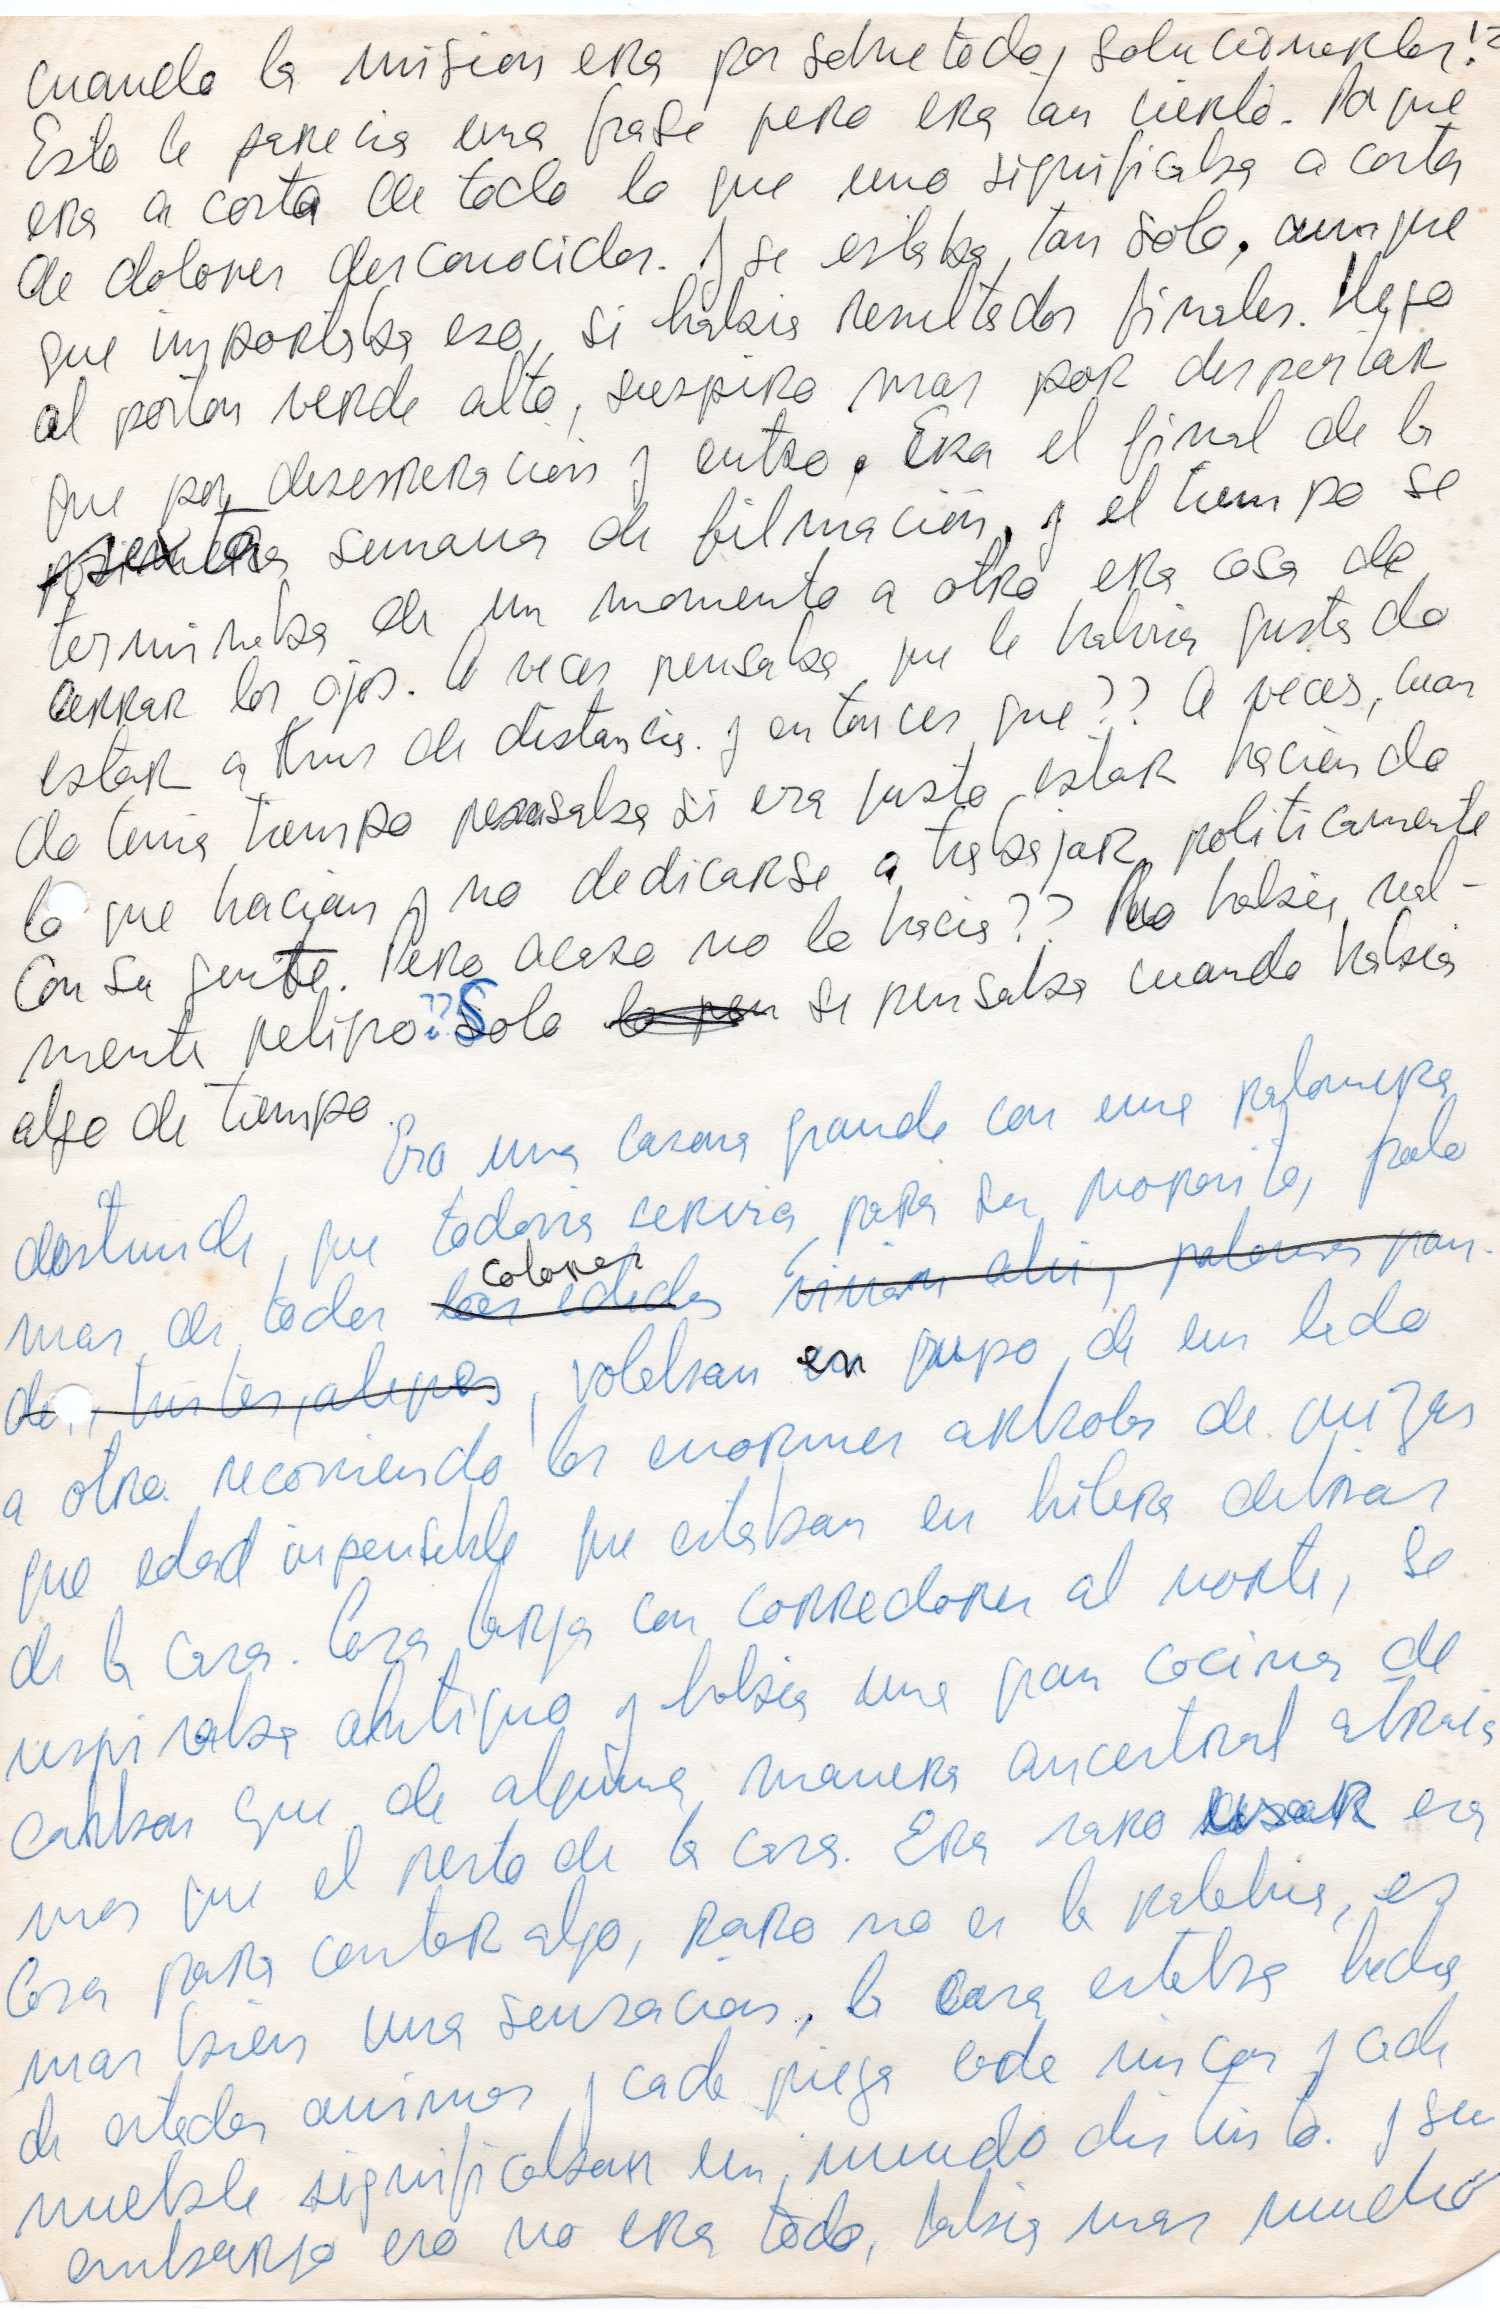 cuando la mision era por sobre todo, solucionarlos!?
Esto le parecia una frase pero era tan cierto. Porque
era a costa de todo lo que uno significaba a costa
de dolores desconocidos. Y se estaba tan solo, aunque
que importaba eso, si habia resultados finales. Llego
al porton verde alto, suspiro mas por despertar
que por desesperación y entro. Era el final de la
sexta semana de filmación, y el tiempo se
terminaba de un momento a otro era cosa de
cerrar los ojos. A veces pensaba que le habria gustado
estar a kms de distancia. y entonces que?? A veces, cuan
do tenia tiempo pensaba si era justo estar haciendo
lo que hacian y no dedicarse a trabajar politicamente
con su gente. Pero acaso no lo hacia?? No habia real-
mente peligro?? Solo se pensaba cuando habia
algo de tiempo.
Era una casona grande con una palomera
destruida, que todavia servia para su proposito, palo
mas de todos colores
, volaban en grupo de un lado
a otro recorriendo los enormes arboles de quizas
que edad inpensable que estaban en hilera detras
de la casa. Casa larga con corredores al norte, se
respiraba antiguo y habia una gran cocina de
carbon que de alguna manera ancestral atraia
mas que el resto de la casa. Era raro era
cosa para contar algo, raro no es la palabra, es
mas bien una sensacion, la casa estaba hecha
de estados animos y cada pieza cada rincon y cada
mueble significaban un mundo distinto. Y sin
embargo eso no era todo, habia mas mucho